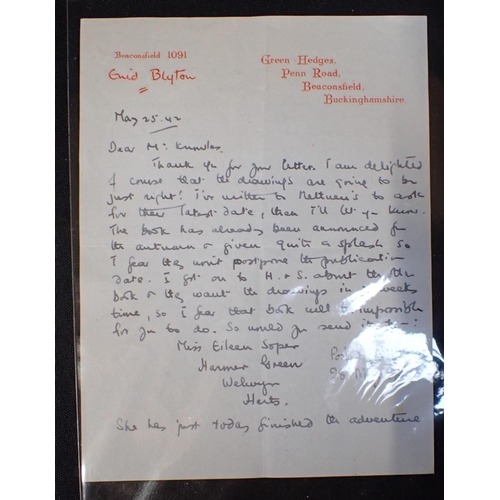 Beaconsfield 1091
Enid Blyton
Green Hedges,
Penn Road,
Beaconsfield,
Buckinghamshire.
May 25. 42
Dear Mr Knowles
Thank you for your letter. I am delighted
of course that the drawings are going to be
just right! I've written to Methuen's to ask
for their latest date, then I'll let you know.
The book has already been announced for
the autumn & given quite a splash so
I fear they won't postpone the publication
date. I got on to H. & S. about the other
book & they want the drawings in weeks
time, so I fear that book will be impossible
for you to do. So would you send it to :
Miss Eileen Soper
Harmer Green
Welwyn
Herts.
She has just today finished the adventure